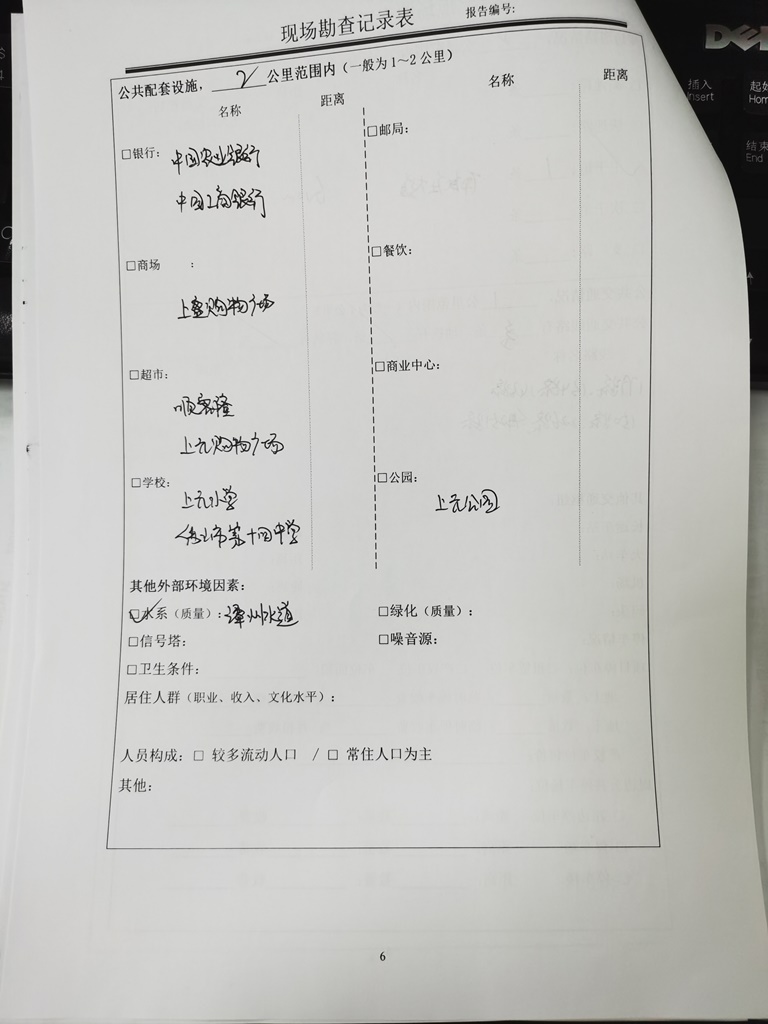 现场勘查记录表
报告编号:
公共配套设施，2公里范围内（一般为1～2公里）
名称 距离 名称 距离
□银行： 中国农业银行
中国工商银行
□邮局：
□商场 ：
上壹购物广场
□餐饮：
□超市：
顺客隆
上元购物广场
□商业中心：
□学校： 上元小学
佛山市第十四中学
□公园：
上元公园
其他外部环境因素：
☑水系（质量）：潭州水道 □绿化（质量）：
□信号塔： □噪音源：
□卫生条件：
居住人群（职业、收入、文化水平）：
人员构成：□ 较多流动人口 / □ 常住人口为主
其他：
6
DELL
插入
Insert
结束
End